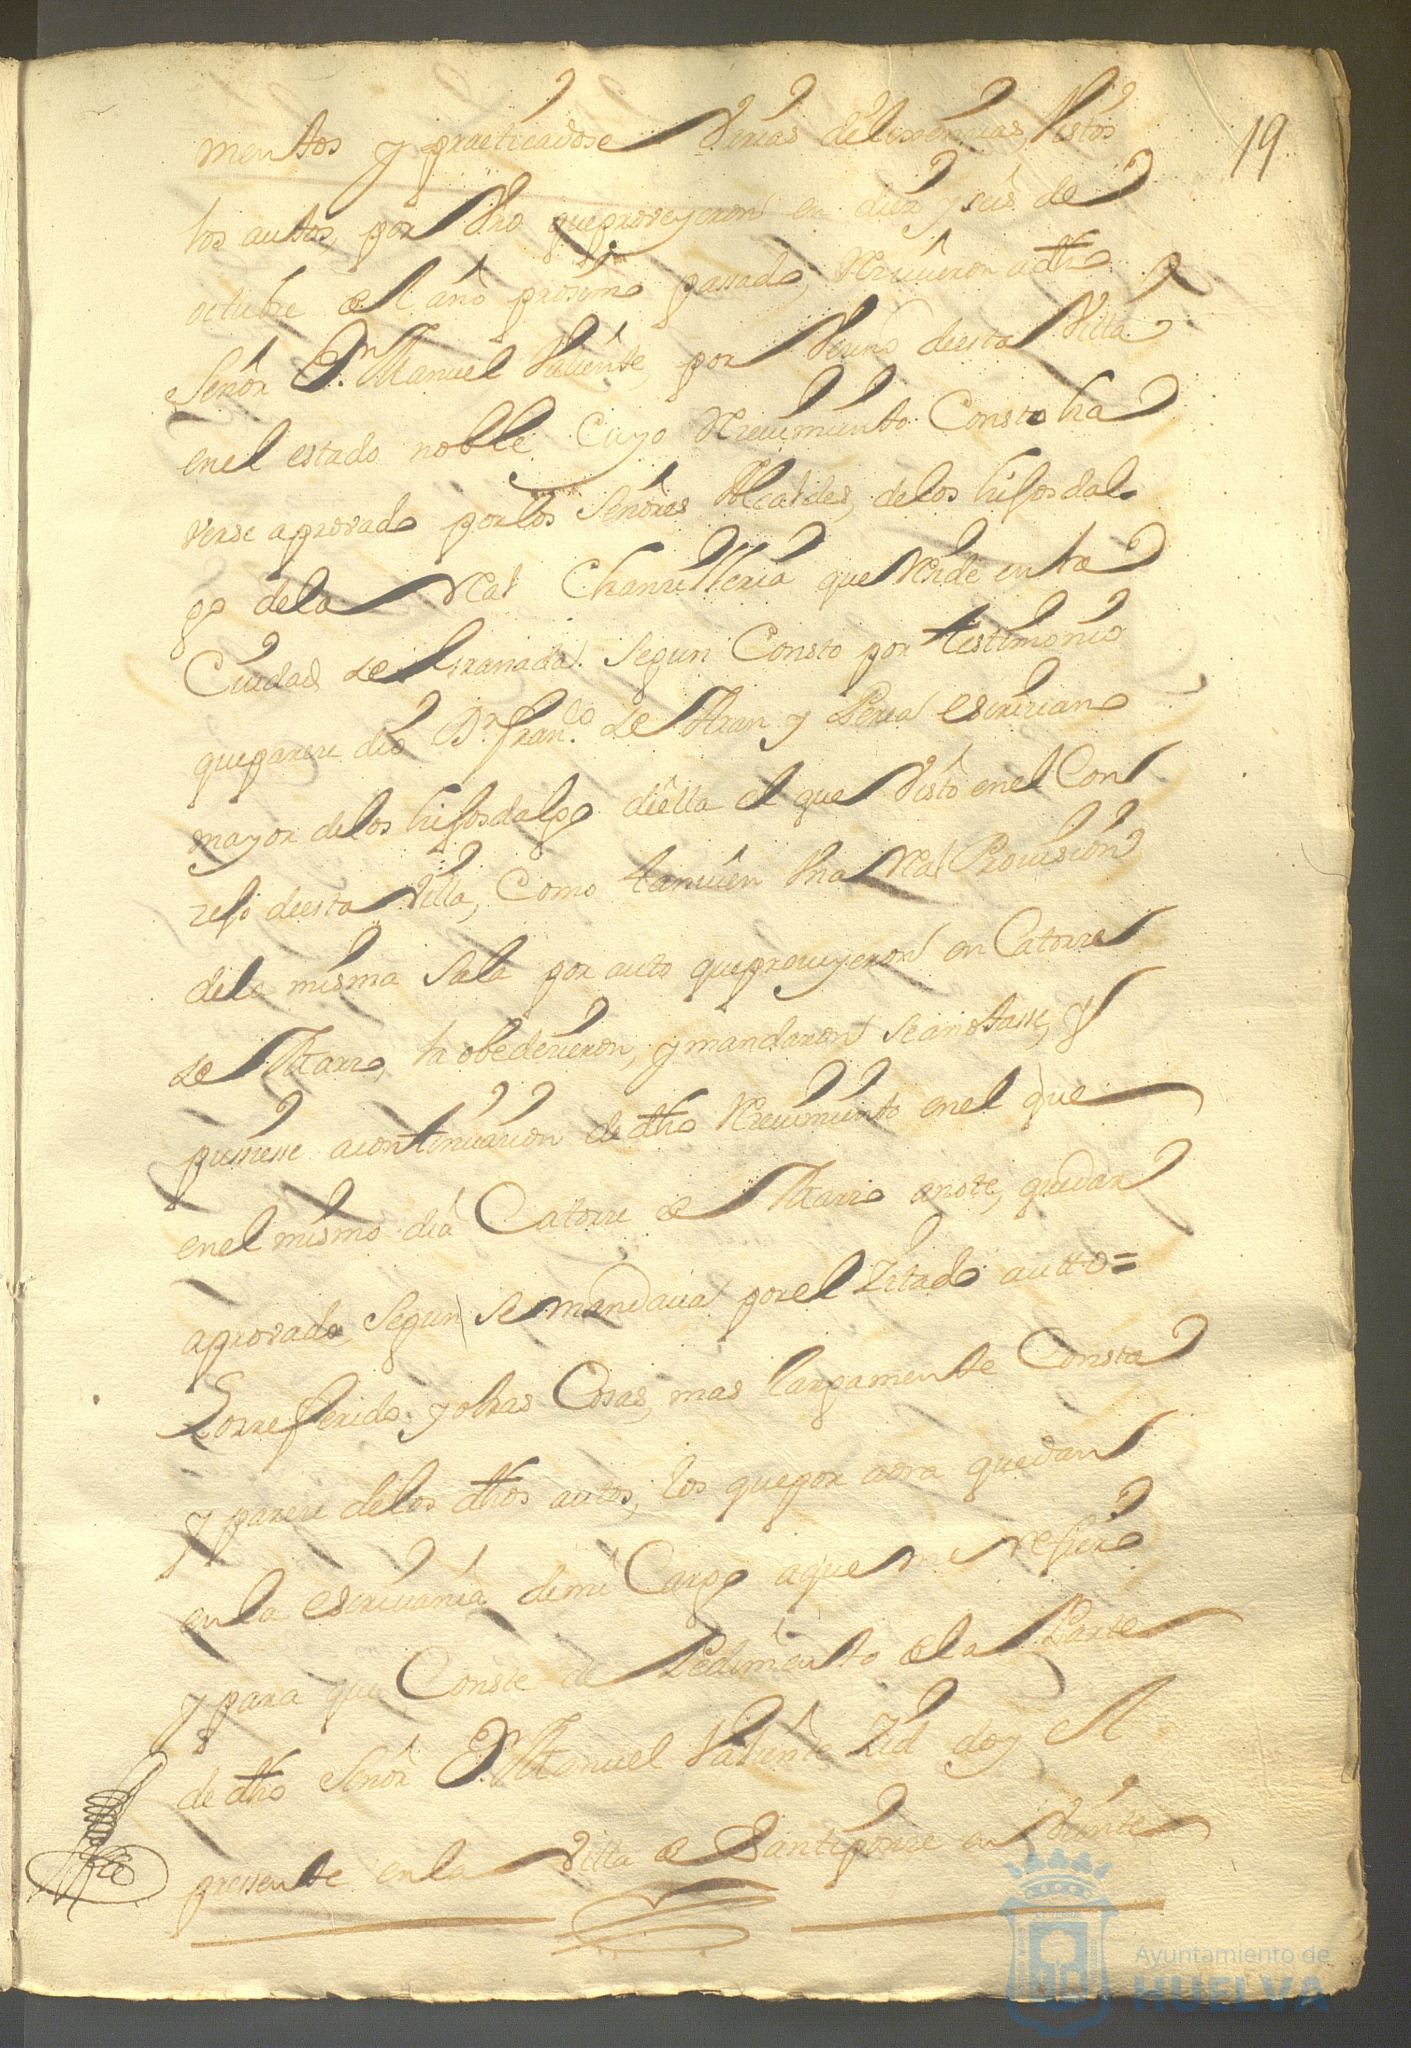 19
mentos y practicadose Varias delixencias, Vistos
los autos, por Vno que proveyeron en diez y seis de
octubre del año proximo passado, Rzivieron adho
Señor Dn. Manuel Valiente, por Vezino deesta Villa
enel estado noble Cuyo Rzevimiento Consto ha
verse aprovado porlos Señores Alcaldes, delos hijosdal
go dela Real Chanzilleria que Rezide en la
Ciudad de Granada. Segun Consto por testimonio
queparece dio Dn. Franco. de y escrivano
mayor delos hijosdalgo della el que Visto enel Con
zejo deesta Villa, Como tanvien Vna Real Provission
dela misma Sala por auto queproveyeron en Catorze
de Marzo, la obedezieron, y mandaron seanotasse, y
pusiesse acontinuazion de dho Rzevimiento enel que
enel mismo dia Catorze de Marzo anote, quedar
aprovado, Segun se mandava por el Zitado autto=
Lorreferido, y otras Cosas, mas largamente Consta
y pareze delos dhos autos, los quepor aora quedan
en la escrivania demi Cargo aque me refiero
y para que Conste de Pedimento de la Parte
de dho Señor Dn. Manuel Valiente Zid doy el
pressente en la Villa de Santiponze en Veinte
Ayuntamiento de
HUELVA